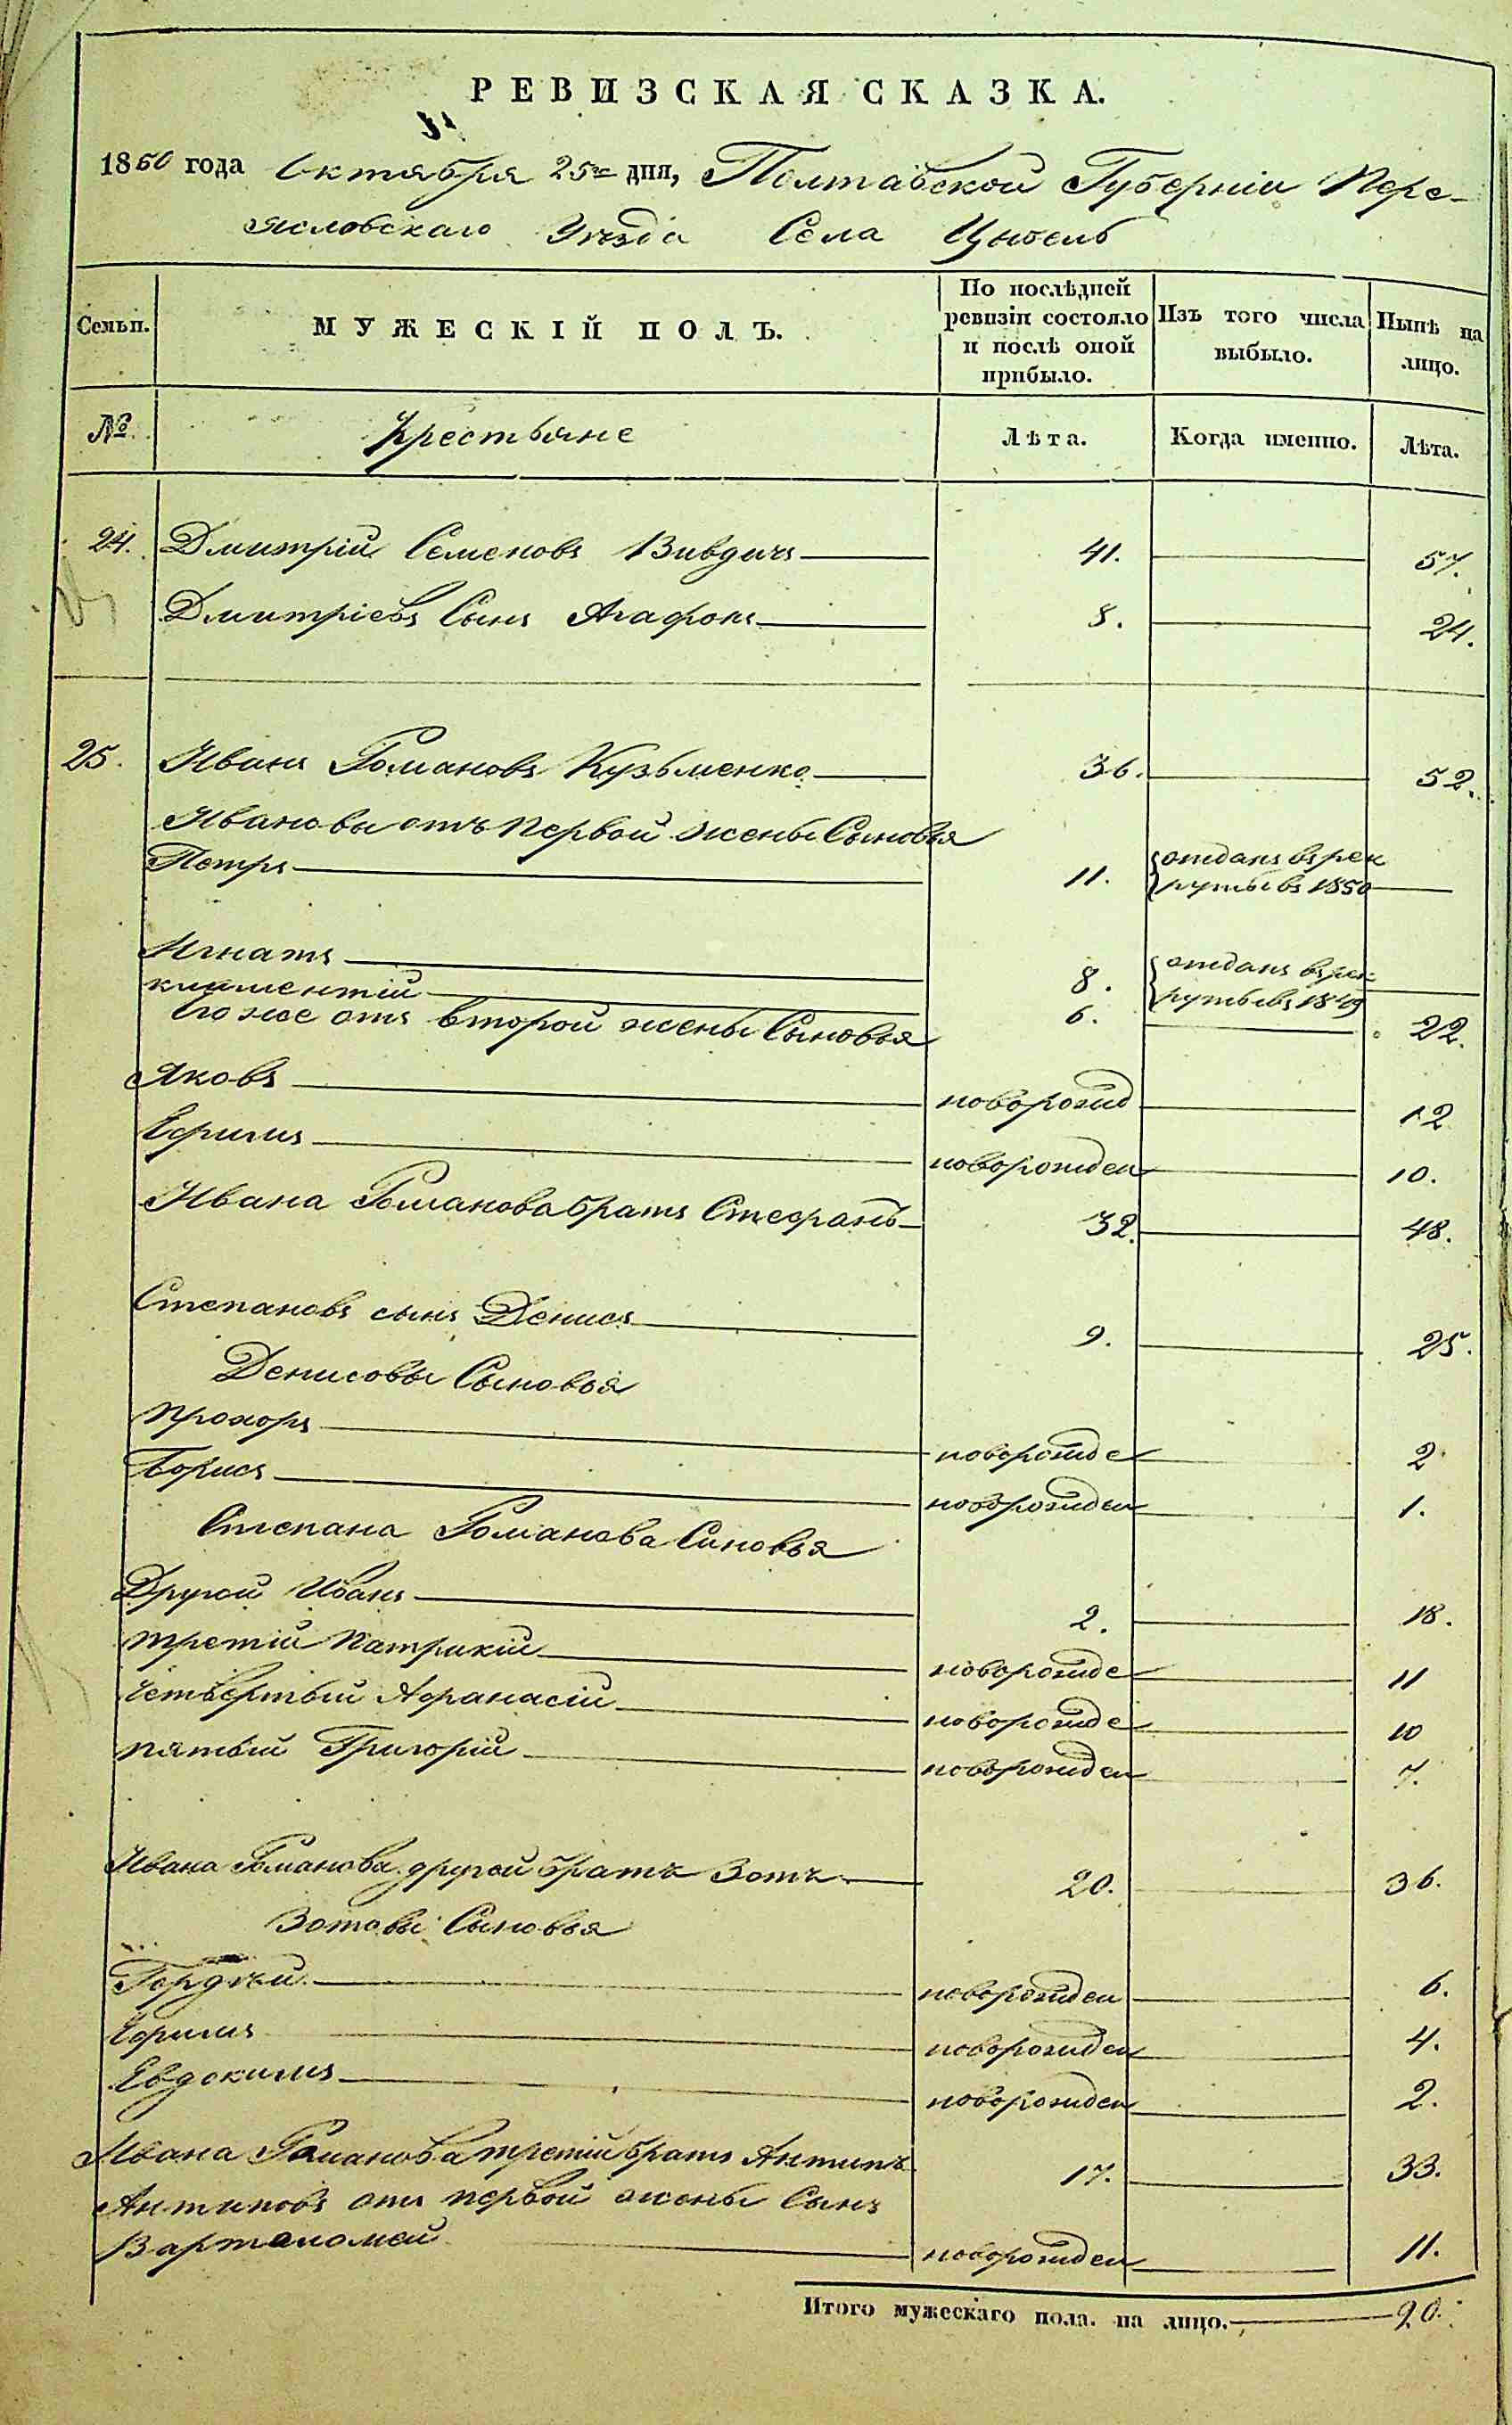 РЕВИЗСКАЯ СКАЗКА.
1850 года Октября 25го дня, Полтавской Губерніи Пере-
яславскаго Уѣзда Села
Семьи. МУЖЕСКІЙ ПОЛЪ. По послѣдней ревизіи состояло и послѣ оной прибыло. Изъ того числа выбыло. Нынѣ на лицо.
№ Крестьяне Лѣта. Когда именно. Лѣта.
24. Дмитрій Семеновъ 41. 57.
Дмитріевъ Сынъ Агафонъ 8. 24.
25. Иванъ Романовъ Кузьменко 36. 52.
Ивановы отъ первой жены Сыновья
Петръ 11. отданъ въ рек
руты въ 1850
Игнатъ 8. отданъ въ рек
руты въ 1849
климентій 6. 22.
Его же отъ второй жены Сыновья
Яковъ новорожд 12
Ефимъ новорожден 10.
Ивана Романова братъ Стефанъ 32. 48.
Степановъ сынъ Денисъ 9. 25.
Денисовы Сыновья
прохоръ новорожде 2
Борисъ новорожден 1.
Степана Романова Синовья
Другой Иванъ 2. 18.
третій Патрикій новорожде 11
четвертый Афанасій новорожде 10
пятый Григорій новорожден 7.
Ивана Романова другой братъ Зотъ 20. 36.
Зотовы Сыновья
Гордѣй новорожден 6.
Ефимъ новорожден 4.
Евдокимъ новорожден 2.
Ивана Романова третій братъ Антипъ 17. 33.
Антиповъ отъ первой жены Сынъ
Вартоломей новорожден 11.
Итого мужескаго пола. на лицо. 20.